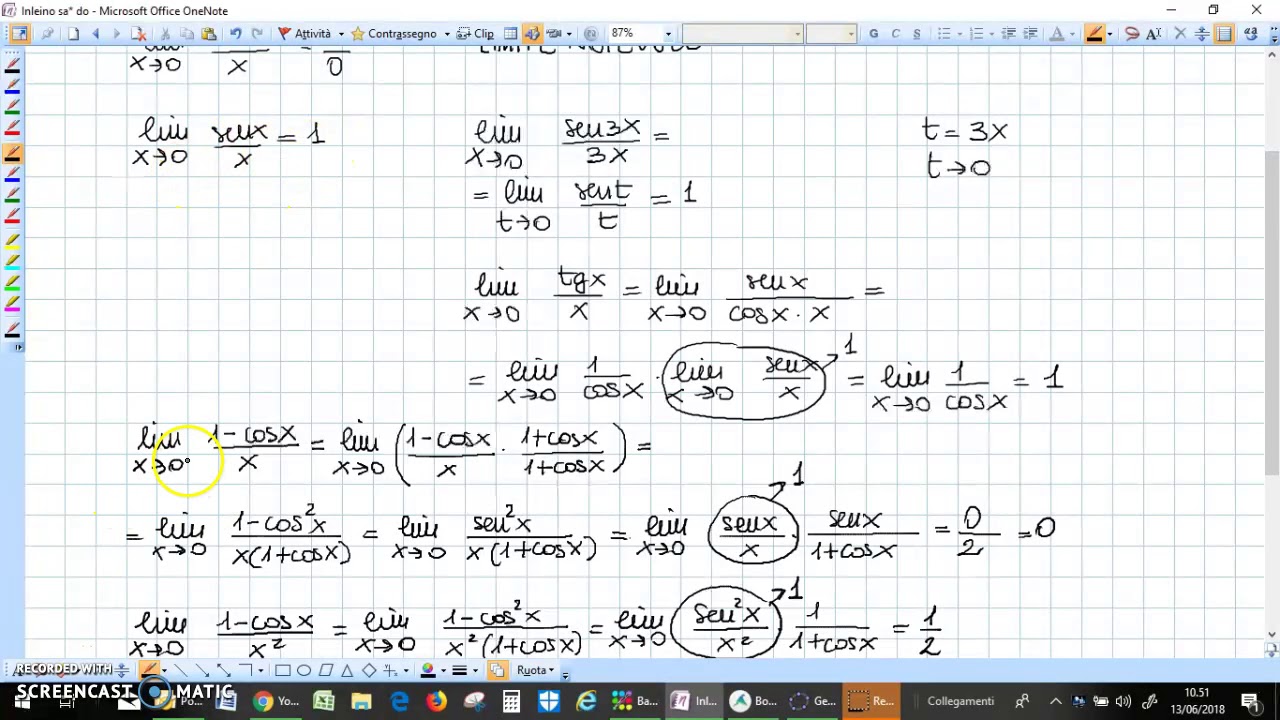 Inleino sa* do - Microsoft Office OneNote
Attività Contrassegno Clip 87% G C S
x→0 x 0
lim x→0 senx/x = 1 lim x→0 sen3x/3x = t = 3x
t→0
= lim t→0 sent/t = 1
lim x→0 tgx/x = lim x→0 senx/cosx · x =
= lim x→0 1/cosx · lim x→0 senx/x →1 = lim x→0 1/cosx = 1
lim x→0 1-cosx/x = lim x→0 (1-cosx/x · 1+cosx/1+cosx) =
= lim x→0 1-cos²x/x(1+cosx) = lim x→0 sen²x/x(1+cosx) = lim x→0 senx/x →1 · senx/1+cosx = 0/2 = 0
lim x→0 1-cosx/x² = lim x→0 1-cos²x/x²(1+cosx) = lim x→0 sen²x/x² →1 1/1+cosx = 1/2
Ruota
RECORDED WITH
SCREENCAST MATIC
Po... Yo... Ba... Inl... Bo... Ge... Re... Collegamenti 10.51
13/06/2018